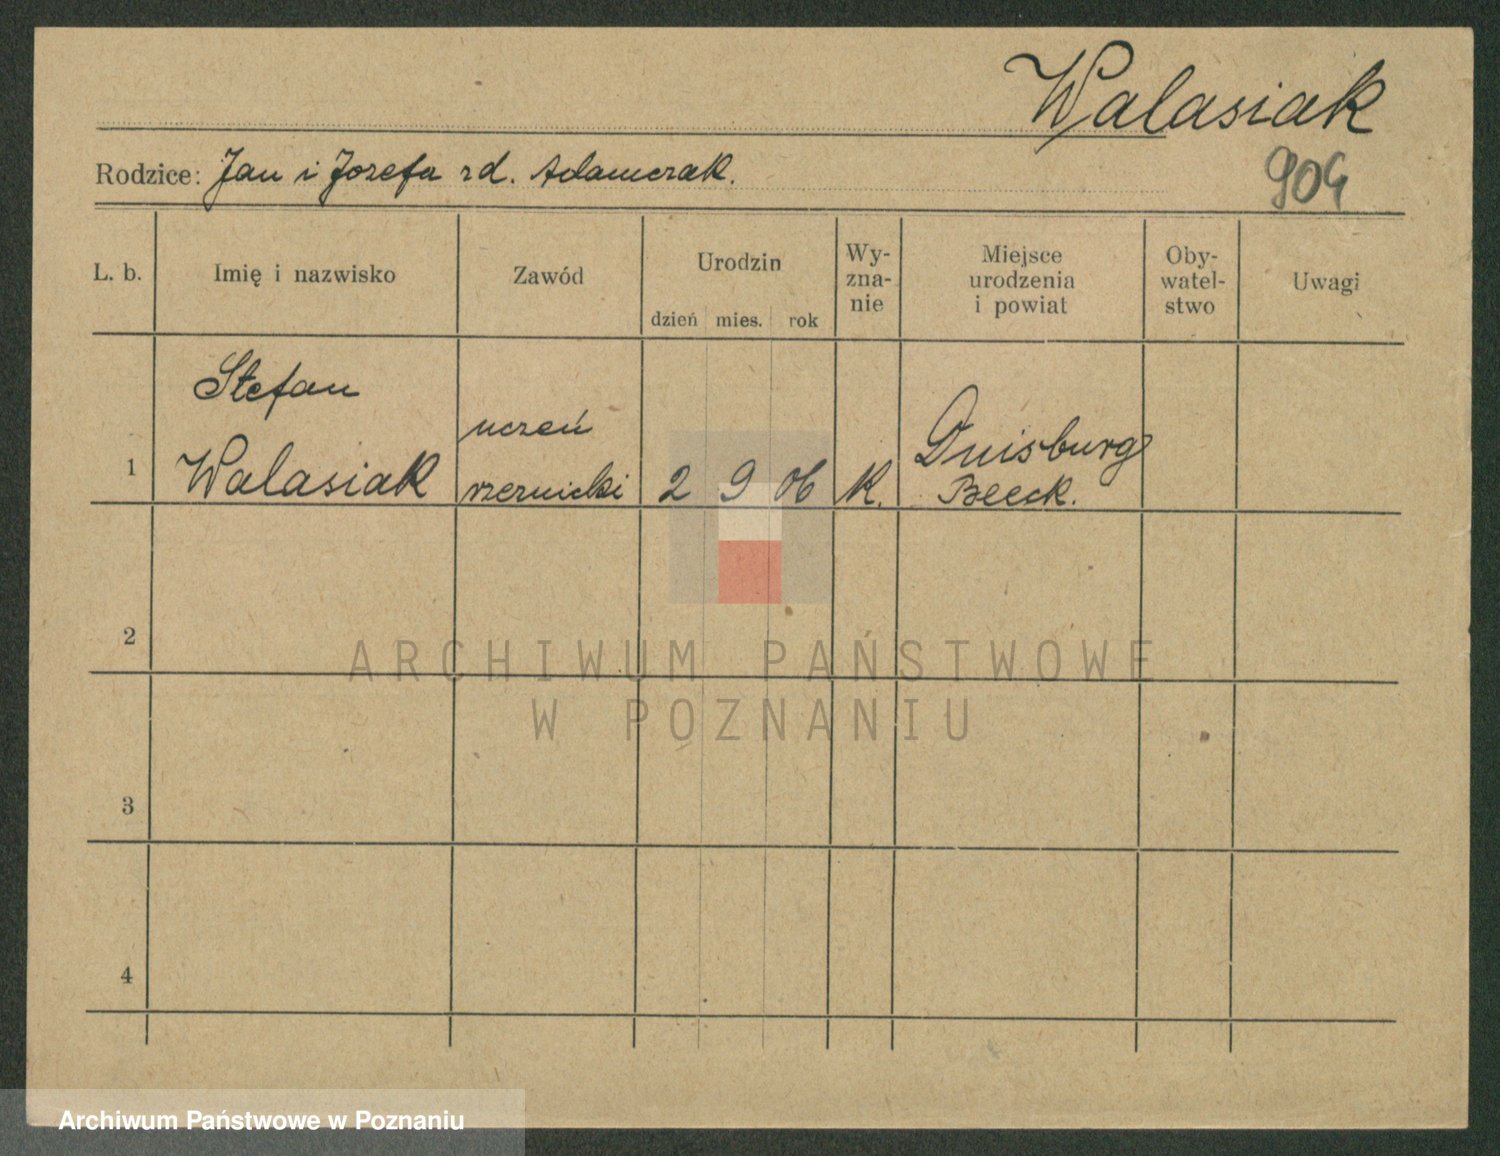 Walasiak
Rodzice: Jan i Jozefa zd. Adamczak.
904
L. b.
Imię i nazwisko
Zawód
Urodzin
dzień mies. rok
Wy-
zna-
nie
Miejsce
urodzenia
i powiat
Oby-
watel-
stwo
Uwagi
1
Stefan
Walasiak
uczeń
rzeźnicki
2 9 06
K.
Duisburg
Beeck.
2
3
4
ARCHIWUM PAŃSTWOWE
W POZNANIU
Archiwum Państwowe w Poznaniu